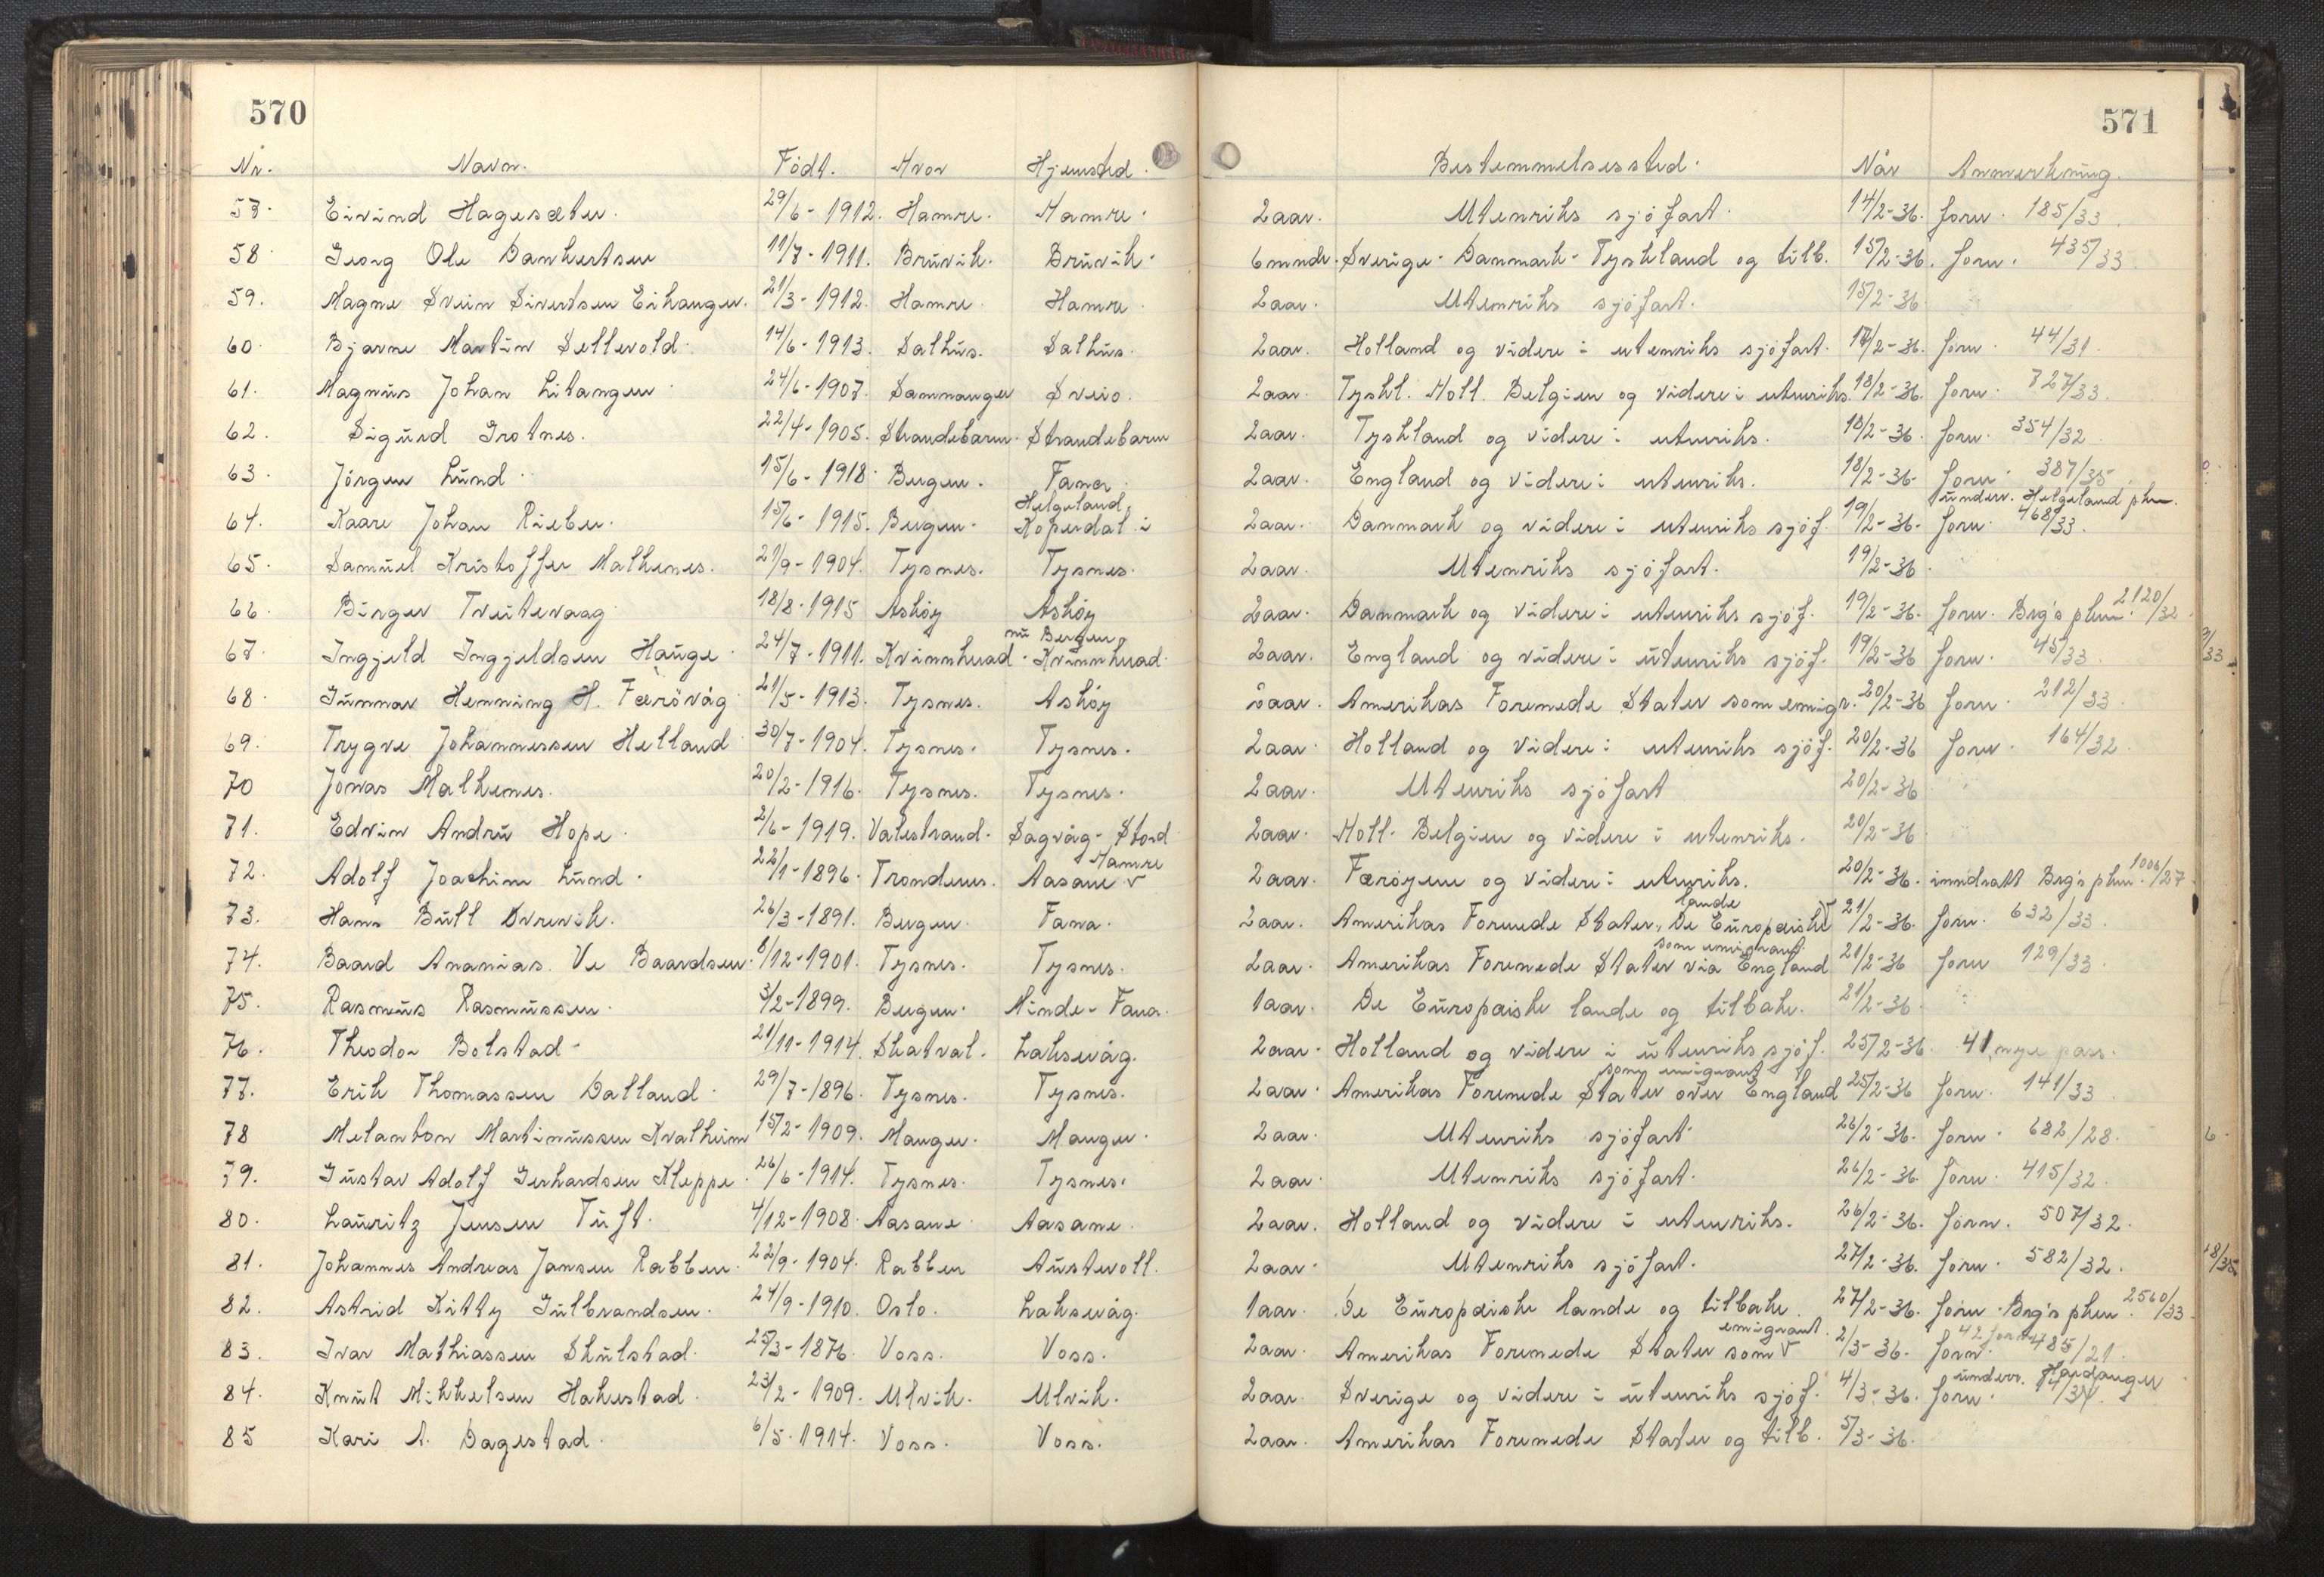 570
Nr. Navn. Född. Hvor Hjemsted.
57. Eivind Hagesæter. 29/6-1912. Hamre. Hamre.
58. Georg Ole Dankertsen 11/7-1911. Bruvik. Bruvik.
59. Magne Svein Sivertsen Eikanger. 21/3-1912. Hamre. Hamre.
60. Bjarne Martin Sellevold. 14/6-1913. Salhus. Salhus.
61. Magnus Johan Litangen. 24/6-1907. Samnanger Sveio.
62. Sigurd Grotnes. 22/4-1905. Strandebarm. Strandebarm
63. Jörgen Lund. 15/6-1918. Bergen. Fana.
Helgeland,
64. Kaare Johan Rieber. 15/6-1915. Bergen. Koperdal i
65. Samuel Kristoffer Malkenes. 21/9-1904. Tysnes. Tysnes.
66. Birger Tveitevaag 18/8-1915 Askøy Askøy
nu Bergen
67. Ingjeld Ingjeldsen Hauge. 24/7-1911. Kvinnherad. Kvinnherad.
68. Gunnar Henning H. Færövåg 21/5-1913. Tysnes. Askøy
69. Trygve Johannessen Helland 30/7-1904. Tysnes. Tysnes.
70 Jonas Malkenes. 20/2-1916. Tysnes. Tysnes.
71. Edvin Andru Hope. 2/6-1919. Valestrand. Sagvåg-Stord
Hamre
72. Adolf Joachim Lund. 22/1-1896. Trondenes. Aasane
73. Hans Bull Ovrevik. 26/3-1891. Bergen. Fana.
74. Baard Ananias Ve Baardsen. 8/12-1901. Tysnes. Tysnes.
75. Rasmus Rasmussen. 3/2-1899. Bergen. Minde-Fana.
76. Theodor Bolstad- 21/11-1914. Skatval. Laksevåg.
77. Erik Thomassen Dalland. 29/7-1896. Tysnes. Tysnes.
78 Melanton Martinussen Kvalheim 15/2-1909. Manger. Manger.
79. Gustav Adolf Gerhardsen Kleppe. 26/6-1914. Tysnes. Tysnes.
80. Lauritz Jensen Tuft. 4/12-1908. Aasane. Aasane.
81. Johannes Andreas Jansen Rabben. 22/9-1904. Rabben Austevoll.
82. Astrid Kitty Gulbrandsen. 24/9-1910. Oslo. Laksevåg.
83. Ivar Mathiassen Skulstad. 25/3-1876. Voss. Voss.
84. Knut Mikkelsen Hakestad. 23/2-1909. Ulvik. Ulvik.
85 Kari A. Dagestad. 6/5-1914. Voss. Voss.
571
Bestemmelsessted. Når Anmerkning.
2 aar. Utenriks sjöfart. 14/2-36. forn. 185/33.
6 mndr. Sverige-Danmark-Tyskland og tilb. 15/2-36. forn. 435/33.
2 aar. Utenriks sjöfart. 15/2-36
2 aar. Holland og videre i utenriks sjöfart. 17/2-36. forn. 44/31.
2 aar. Tyskl. Holl. Belgien og videre i utenriks. 18/2-36. forn. 727/33.
2 aar. Tyskland og videre i utenriks. 18/2-36. forn. 354/32.
2 aar. England og videre i utenriks. 18/2-36. forn. 387/35
underv. Helgeland pkm.
2 aar. Danmark og videre i utenriks sjöf. 19/2-36. forn. 468/33.
2 aar. Utenriks sjöfart. 19/2-36.
2 aar. Danmark og videre i utenriks sjöf. 19/2-36. forn. Brg's pkm. 2120/32.
2 aar. England og videre i utenriks sjöf. 19/2-36 forn. 45/33. 3/33
2 aar. Amerikas Forenede Stater som emigr. 20/2-36 forn. 212/33.
2 aar. Holland og videre i utenriks sjöf. 20/2-36 forn. 164/32.
2 aar. Utenriks sjöfart 20/2-36
2 aar. Holl. Belgien og videre i utenriks. 20/2-36
2 aar. Færøyene og videre i utenriks. 20/2-36. inndratt Brg's pkm. 1006/27.
lande
2 aar. Amerikas Forenede Stater, De Europæiske 21/2-36. forn. 632/33.
som emigrant
2 aar. Amerikas Forenede Stater via England 21/2-36 forn 129/33.
1 aar. De Europæiske lande og tilbake. 21/2-36.
2 aar. Holland og videre i utenriks sjöf. 25/2-36. 41 nye pass.
som emigrant
2 aar. Amerikas Forenede Stater over England 25/2-36 forn. 141/33.
2 aar. Utenriks sjöfart 26/2-36. forn. 682/28. 6.
2 aar. Utenriks sjöfart. 26/2-36. forn. 415/32.
2 aar. Holland og videre i utenriks. 26/2-36. forn. 507/32.
2 aar. Utenriks sjöfart. 27/2-36. forn. 582/32. 18/35
1 aar. De Europæiske lande og tilbake. 27/2-36. forn. Brg's pkm. 2560/33.
emigrant. 42 forn
2 aar. Amerikas Forenede Stater som 2/3-36. forn. 485/21.
underv. Hardanger
2 aar. Sverige og videre i utenriks sjöf. 4/3-36. forn.
2 aar. Amerikas Forenede Stater og tilb. 5/3-36.